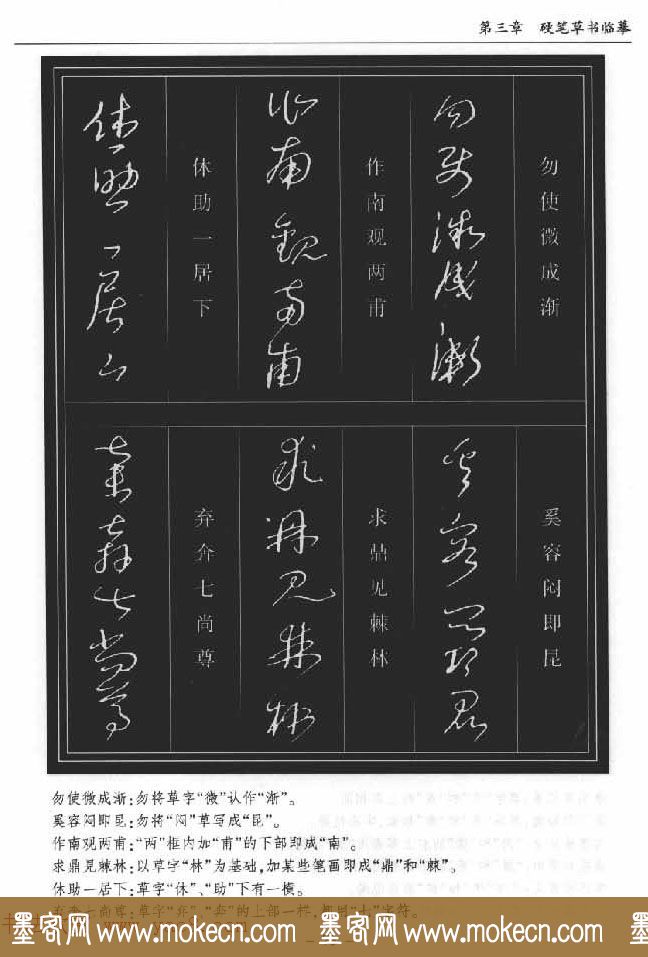 第三章 硬笔草书临摹
勿使微成渐
作南观两甫
休助一居下
奚容闷即昆
求鼎见棘林
弃奔七尚尊
勿使微成渐:勿将草字“微”认作“渐”。
奚容闷即昆:勿将“闷”草写成“昆”。
作南观两甫:“两”框内加“甫”的下部即成“南”。
求鼎見棘林:以草字“林”为基础,加某些笔画即成“鼎”和“棘”。
休助一居下:草字“休”、“助”下有一横。
墨客网 www.mokecn.com 墨客网 www.mokecn.com